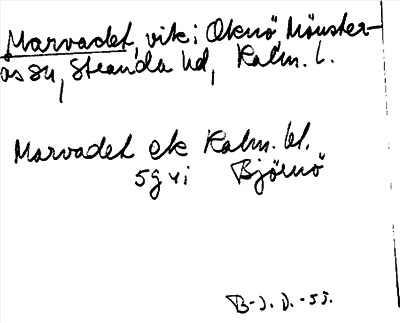 Marvadet, vik i Oknö, Mönster-
ås sn, Stranda hd, Kalm. l.
Marvadet ek Kalm. bl.
5g vi Björnö
B-J. D. -55.